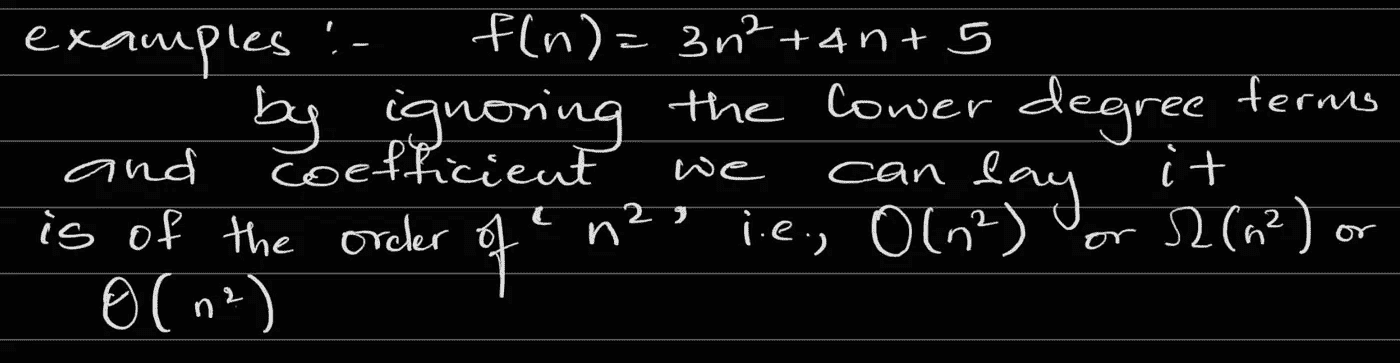 examples :- f(n) = 3n² + 4n + 5
by ignoring the lower degree terms
and coefficient we can say it
is of the order of ‘n²’ i.e., O(n²) or Ω(n²) or
Θ(n²)